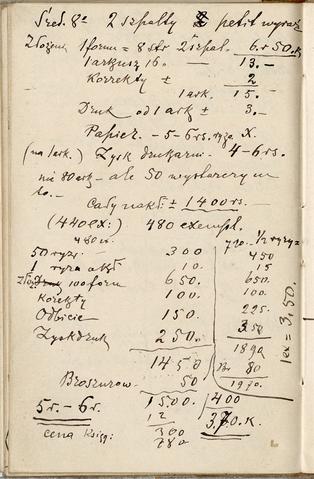 Śred. 8° 2 szpalty petit wyraz
Złożenie 1 form = 8 str 2 szpal. 6.r 50.K.
1 arkusz 16 — = 13.—
Korrekty ± 2
1 ark. 15.—
Druk od 1 ark ± 3.—
Papier — 5-6 rs. ryza X.
(na 1 ark.) Zysk drukarni. 4-6 rs.
nie 80 ark — ale 50 wystarczy
to.—
Cały nakł: ± 1400 rs.—
(440 ex:) 480 exempl.
480
50 ryz: 300
1 ryza okł 10.
100 form 650.
Korekty 100.
Odbicie 150.
Zysk druk 250.
1450
Broszurow. 50
5 r. - 6 r. 1500.
cena księg: 12
300
780
1/2 ryzy
450
15
650.
100.
225.
350
1890
80
1970.
400
3.70.K.
1 ex = 3,50.